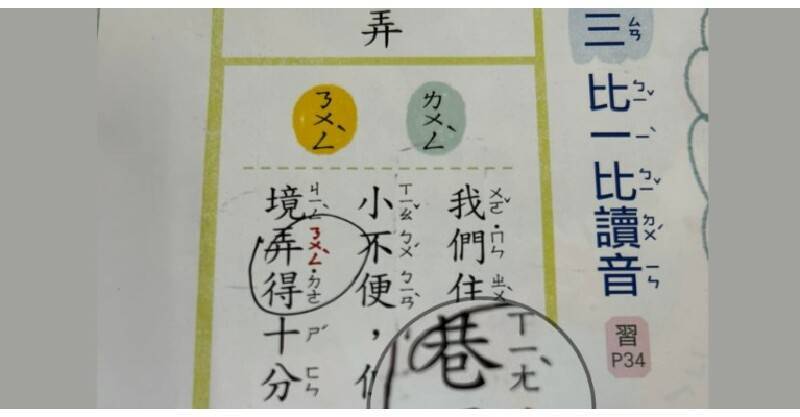 三ㄙㄢ
比ㄅㄧˇ一ㄧˋ比ㄅㄧˇ讀ㄉㄨˊ音ㄧㄣ
習
P34
弄
ㄌㄨㄥˋ
ㄋㄨㄥˋ
我ㄨㄛˇ們˙ㄇㄣ住ㄓㄨˋ巷ㄒㄧㄤˋ
小ㄒㄧㄠˇ不ㄅㄨˊ便ㄅㄧㄢˋ，
境ㄐㄧㄥˋ弄ㄋㄨㄥˋ得˙ㄉㄜ十ㄕˊ分ㄈㄣ